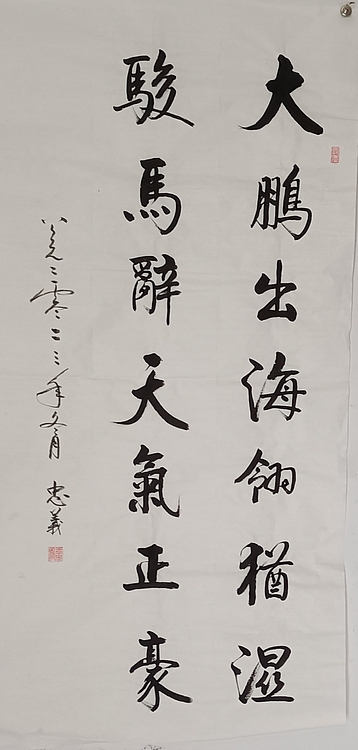 大鵬出海翎猶湿
駿馬辭天氣正豪
公元二零二三年冬月 忠義